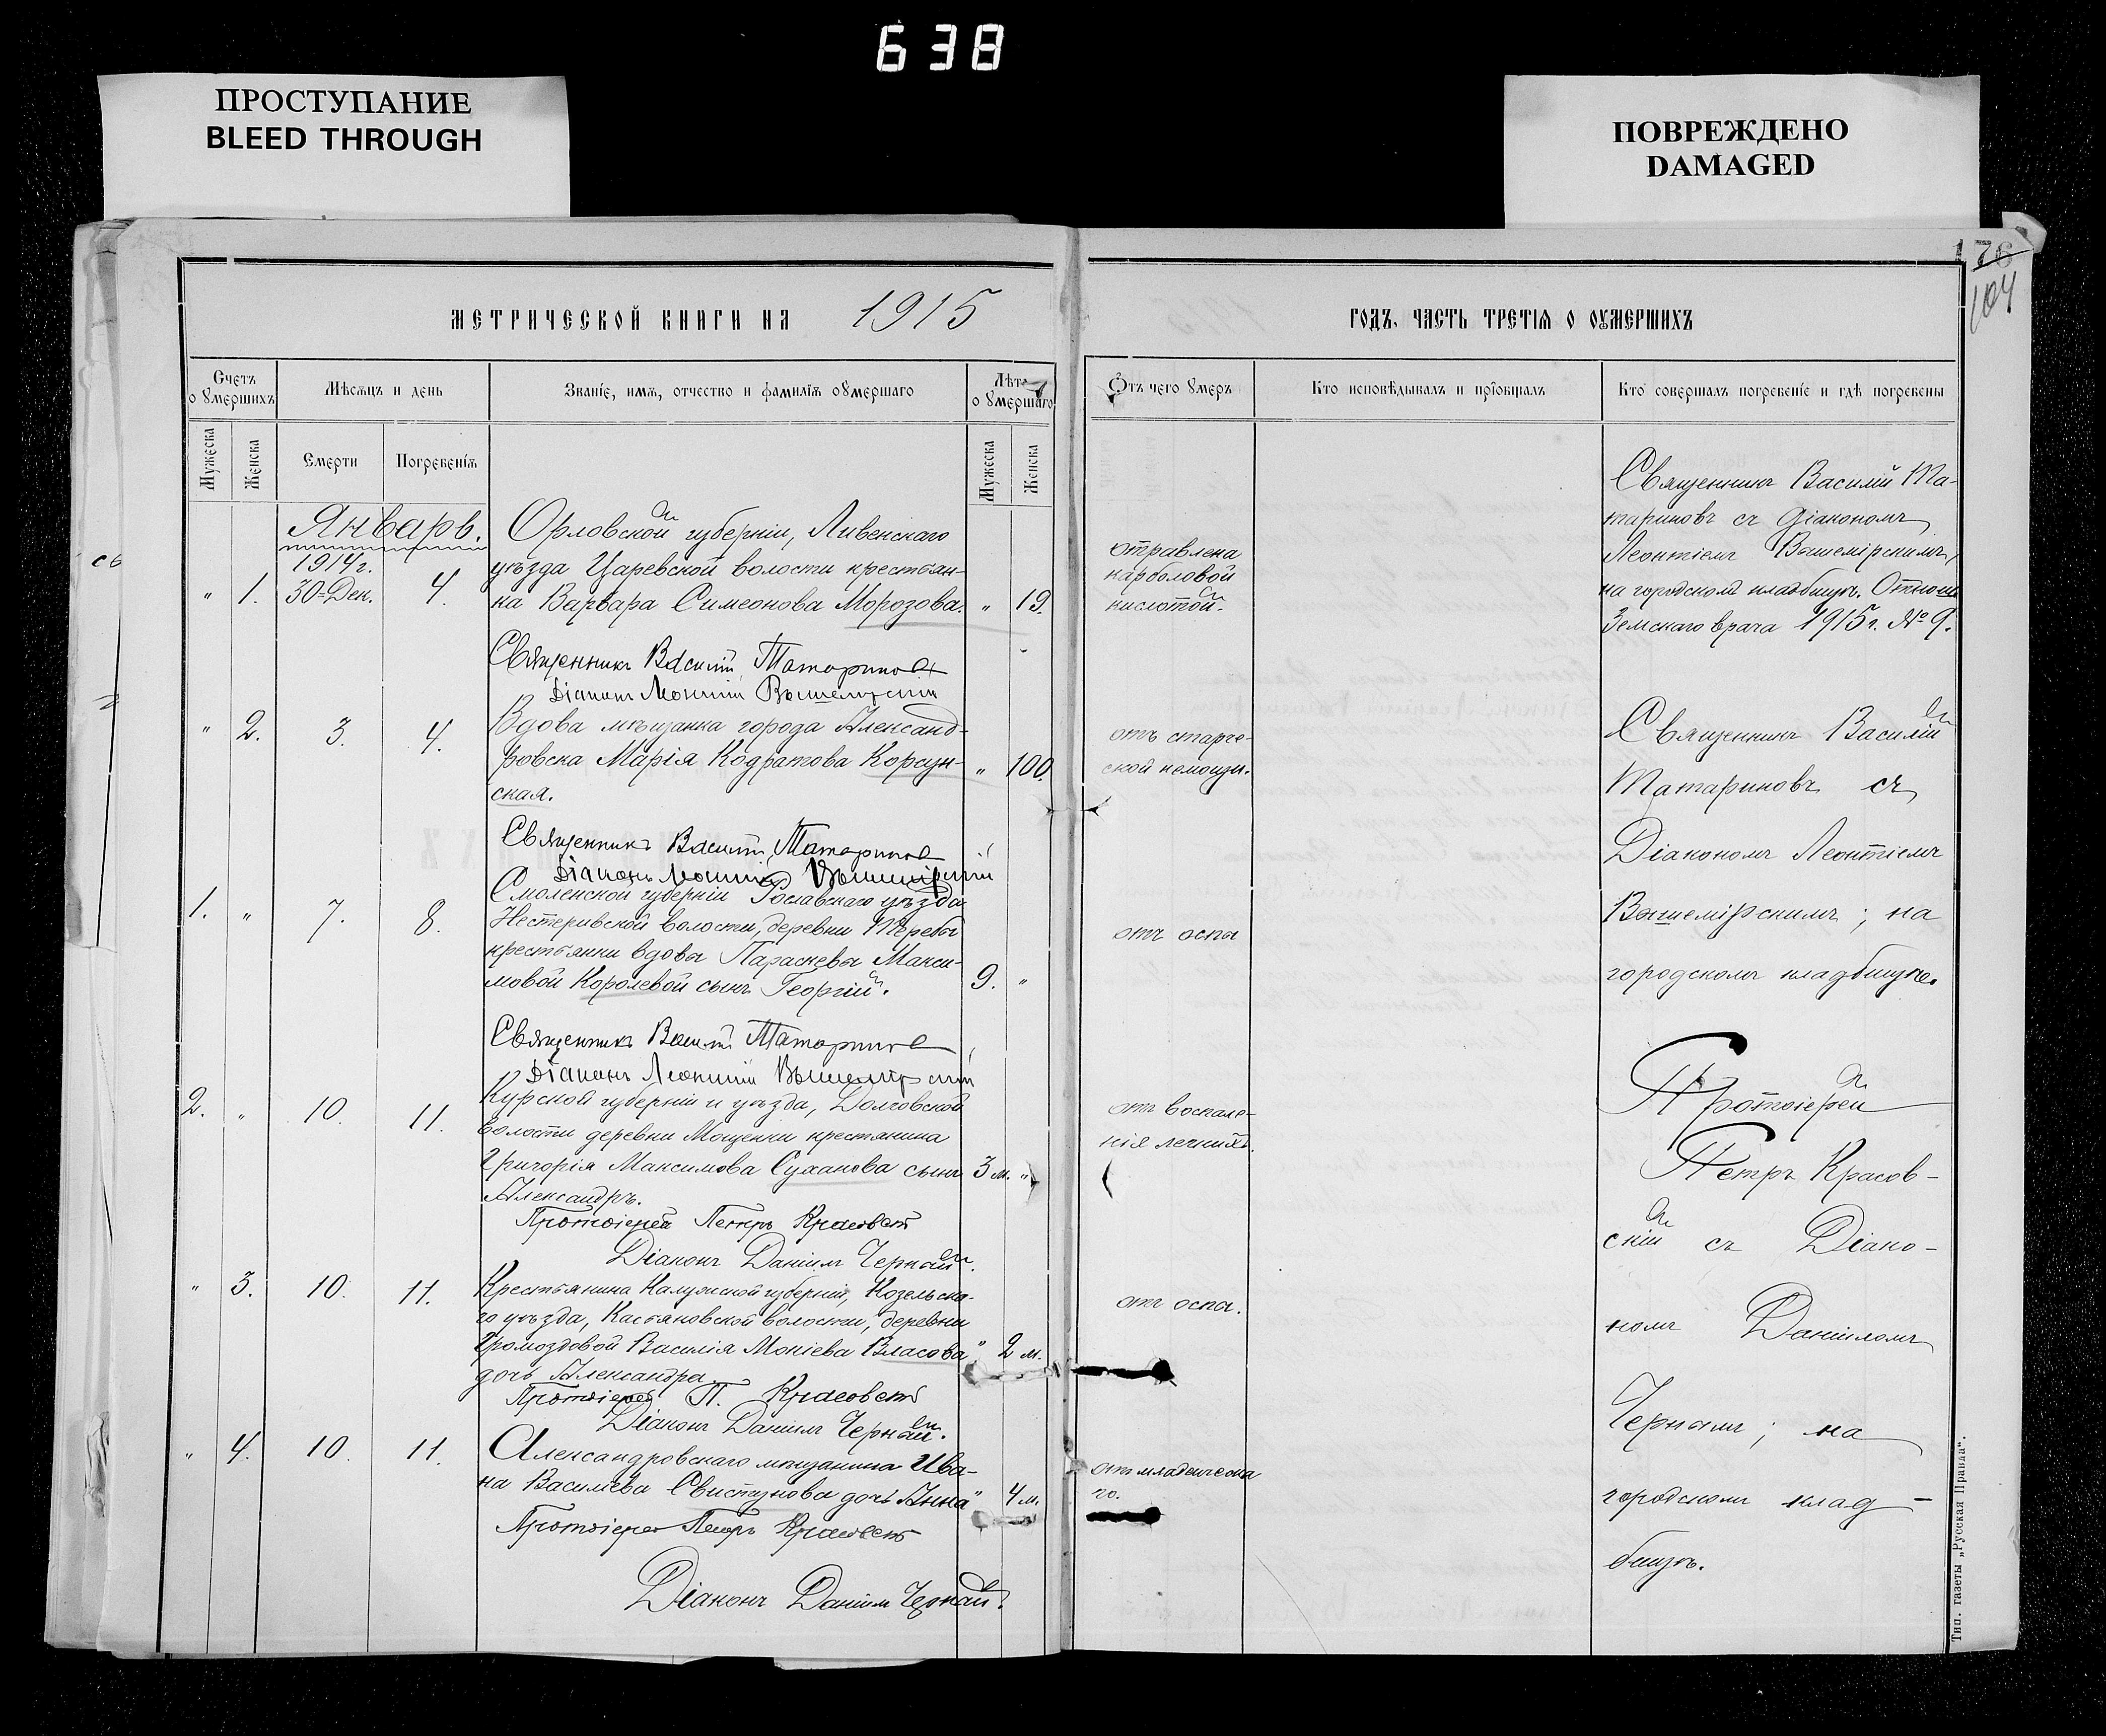 638
ПРОСТУПАНИЕ
BLEED THROUGH
ПОВРЕЖДЕНО
DAMAGED
76
104
МЕТРИЧЕСКОЙ КНИГИ НА 1915
ГОДЪ, ЧАСТЬ ТРЕТІЯ О ОУМЕРШИХЪ
Счетъ о умершихъ
Мѣсяцъ и день
Званіе, имя, отчество и фамилія оумершаго
Лѣта о умершаго
Мужеска
Женска
Смерти
Погребенія
Мужеска
Женска
Отъ чего умеръ
Кто исповѣдывалъ и пріобщалъ
Кто совершалъ погребеніе и гдѣ погребены
Январь.
1914 г.
" 1. 30=Дек. 4.
Орловской губерніи, Ливенскаго
уѣзда Царевской волости крестьян-
ка Варвара Симеонова Морозова. " 19.
отравлена
карболовой
кислотой.
Священникъ Василій Та-
тариновъ съ діакономъ
Леонтіемъ Вышемірскимъ,
на городскомъ кладбищѣ. Отнош.
Земскаго врача 1915 г. № 9.
Священникъ Василій Татариновъ
Діаконъ Леонтій Вышемірскій
" 2. 3. 4.
Вдова мѣщанка города Александ-
ровска Марія Кодратова Корсун- " 100.
ская.
отъ старче-
ской немощи.
Священникъ Василій
Татариновъ съ
Діакономъ Леонтіемъ
Вышемірскимъ; на
городскомъ кладбищѣ.
Священникъ Василій Татариновъ
Діаконъ Леонтій Вышемірскій
1. " 7. 8.
Смоленской губерніи Рославскаго уѣзда
Нестеривской волости, деревни Теребы
крестьянки вдовы Параскевы Макси-
мовой Королевой сынъ Георгій. 9. "
отъ оспы
Священникъ Василій Татариновъ
Діаконъ Леонтій Вышемірскій
2. " 10. 11.
Курской губерніи и уѣзда, Долговской
волости деревни Мощенки крестянина
Григорія Максимова Суханова сынъ 3 м. "
Александръ.
отъ воспале-
нія легкихъ.
Протоіерей
Петръ Красов-
скій съ Діако-
номъ Даніиломъ
Чернымъ; на
городскомъ клад-
бищѣ.
Протоіерей Петръ Красовскій
Діаконъ Даніилъ Черный.
" 3. 10. 11.
Крестьянина Калужской губерніи, Козельска-
го уѣзда, Кастяновской волости, деревни
Громоздовой Василія Мокіева Власова " 2 м.
дочь Александра.
отъ оспы.
Протоіерей П. Красовскій
Діаконъ Даніилъ Черный.
" 4. 10. 11.
Александровскаго мѣщанина Ива-
на Василіева Свистунова дочь Анна " 4 м.
отъ младенческа
го.
Протоіерей Петръ Красовскій
Діаконъ Даніилъ Черный.
Тип. газеты „Русская Правда“.